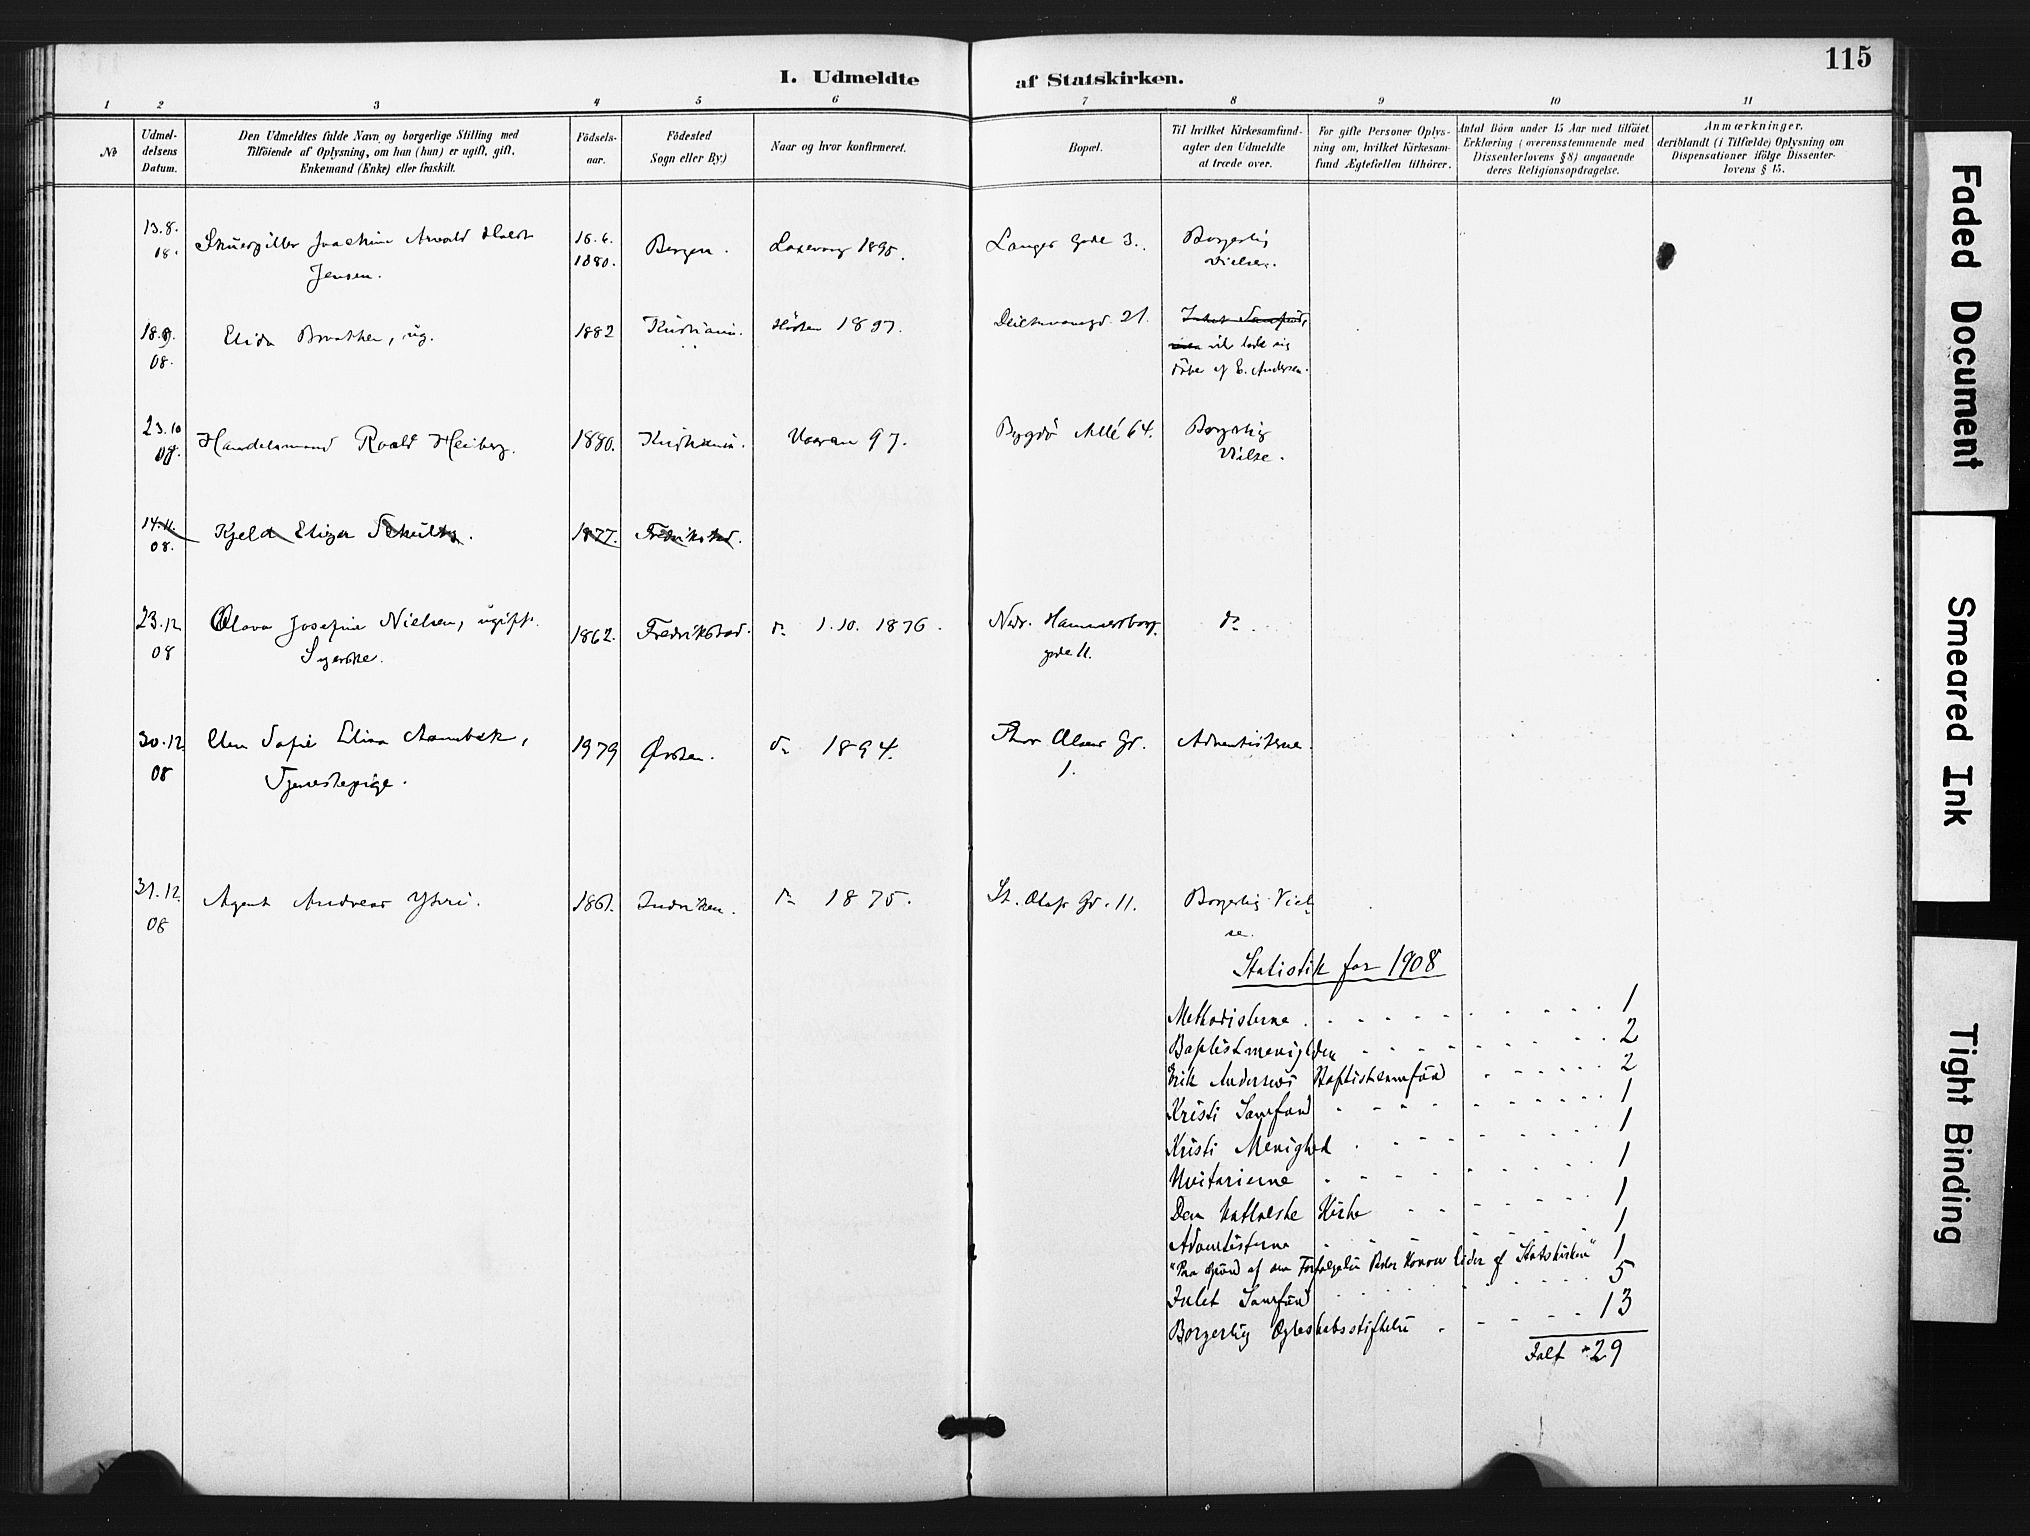 115
I. Udmeldte af Statskirken.
1 2 3 4 5 6 7 8 9 10 11
№
Udmel-
delsens
Datum.
Den Udmeldtes fulde Navn og borgerlige Stilling med
Tilföiende af Oplysning, om han (hun) er ugift, gift,
Enkemand (Enke) eller fraskilt.
Födsels-
aar.
Födested
Sogn eller By.)
Naar og hvor konfirmeret.
Bopæl.
Til hvilket Kirkesamfund-
agter den Udmeldte
at træde over.
For gifte Personer Oplys-
ning om, hvilket Kirkesam-
fund Ægtefællen tilhörer.
Antal Börn under 15 Aar med tilföiet
Erklæring (overensstemmende med
Dissenterlovens § 8) angaaende
deres Religionsopdragelse.
Anmærkninger,
deriblandt (i Tilfælde) Oplysning om
Dispensationer ifölge Dissenter-
lovens § 15.
13.8. Skuespiller Joachim Arvald Holst 16.6. Bergen. Laxevaag 1895. Langes Gade 3. Borgerlig
08. Jensen. 1880. Vielse.
18.9. Elida Braathen, ug. 1882 Kristiania. Høsten 1897. Deichmansgd. 21. Intet Samfund,
vil lade sig
08. døbe af E. Andersen.
23.10 Handelsmand Roald Heiberg. 1880. Kristiania. Vaaren 97. Bygdø Allé 64. Borgerlig
08. Vielse.
14.11. Kjeld Eliza Schultz. 1877. Fredrikstad.
08.
23.12 Olava Josefine Nielsen, ugift. 1862. Fredrikstad. do 1.10. 1876. Nedr. Hammersborg do
08 Syerske. gade 11.
30.12 Elen Sofie Elisa Aambak, 1979 Ørsten. do 1894. Thor Olsens Gd. Adventisterne
08 Tjenestepige. 1.
31.12 Agent Andreas Ytri. 1861. Indviken. do 1875. St. Olafs Gd. 11. Borgerlig Viel-
08 se.
Statistik for 1908
Methodisterne 1
Baptistmenigheden 2
Erik Andersens Baptistsamfund 2
Kristi Samfund 1
Kristi Menighed 1
Unitarierne 1
Den katholske Kirke 1
Adventisterne 1
"Paa Grund af den Forfølgelse Peder Konow lider af Statskirken" 1
Intet Samfund 5
Borgerlig Egteskabsstiftelse 13
Ialt 29
Faded Document
Smeared Ink
Tight Binding